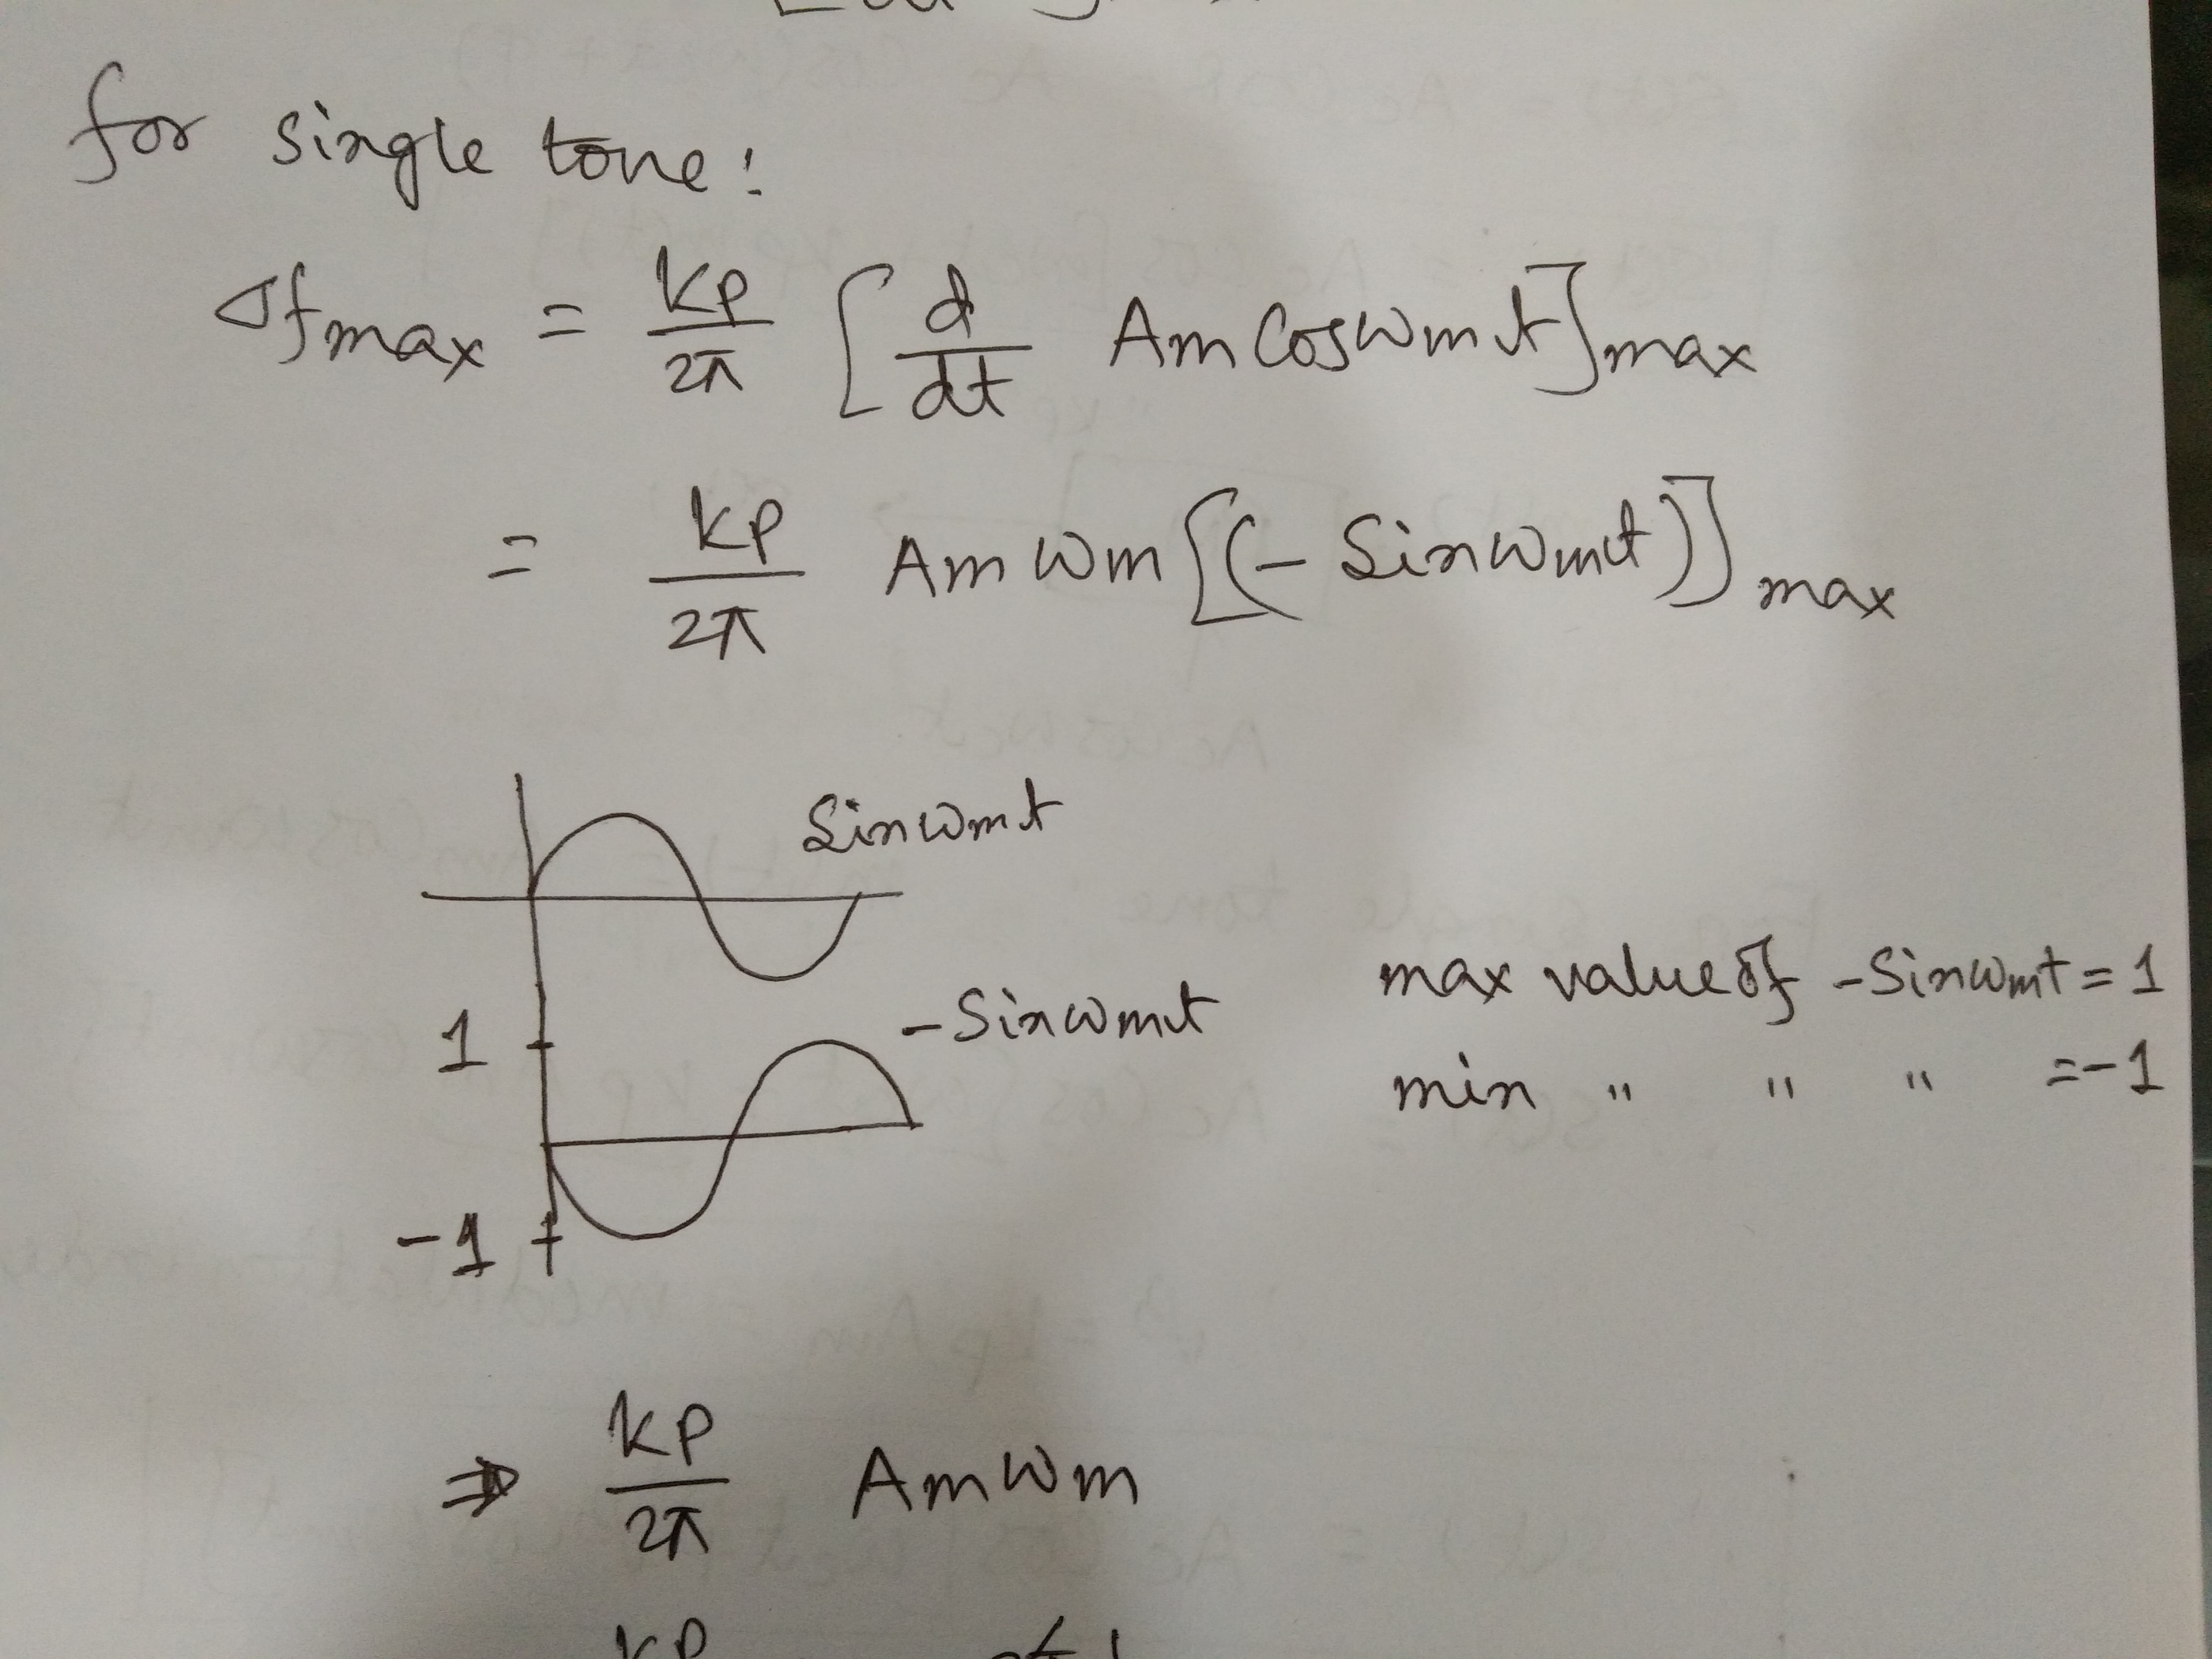 for single tone:
Δfmax = Kp/2π [d/dt Am Cosωmt]max
= Kp/2π Am ωm [(- Sinωmt)]max
Sinωmt
1
-Sinωmt
max value of -Sinωmt = 1
min " " " =-1
-1
⇒ Kp/2π Am ωm
Kp